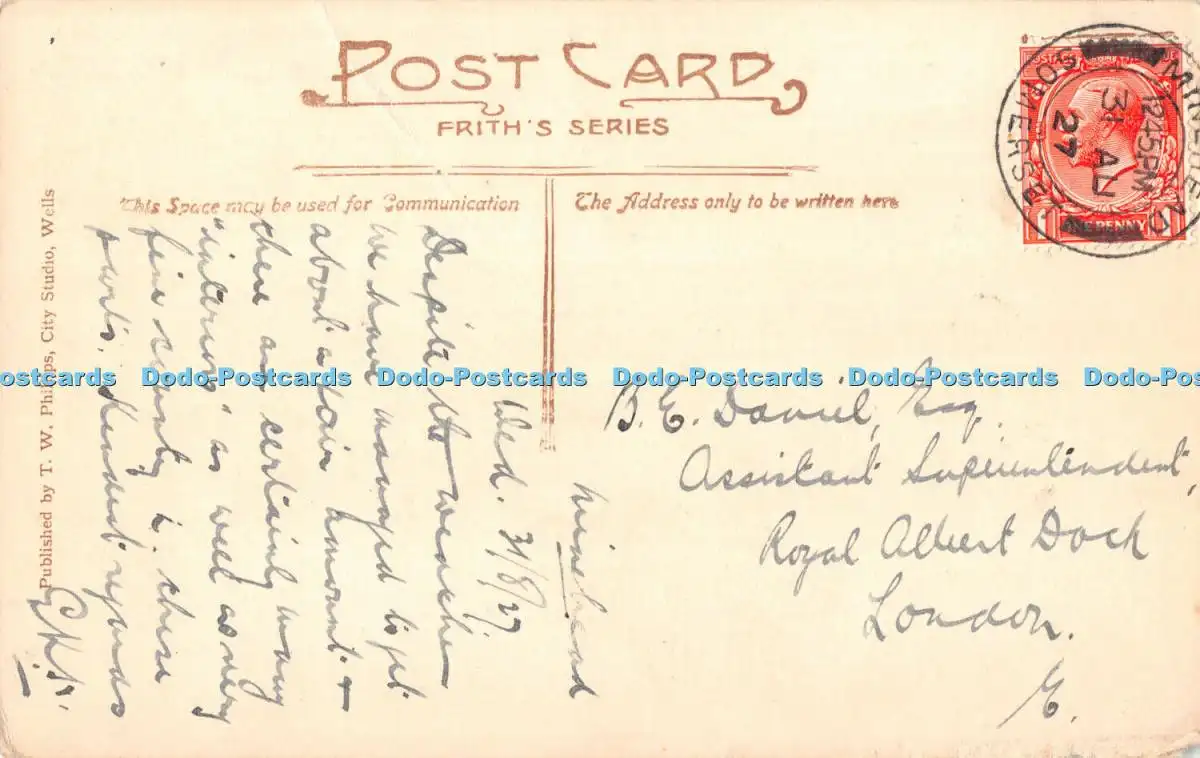 POST CARD
FRITH'S SERIES
This Space may be used for Communication
The Address only to be written here
POSTAGE
ONE PENNY
MINEHEAD
SOMERSET
1245PM
31 AU
27
Published by T. W. Phillips, City Studio, Wells
Minehead
Wed. 31/8/27
Despite the weather
we have managed to get
about a fair amount &
there are certainly many
"interiors" as well as very
fine scenery in these
parts. Kindest regards
B. E. Daniel, Esq.
Assistant Superintendent,
Royal Albert Dock
London.
E.
Dodo-Postcards Dodo-Postcards Dodo-Postcards Dodo-Postcards Dodo-Postcards Dodo-Postcards